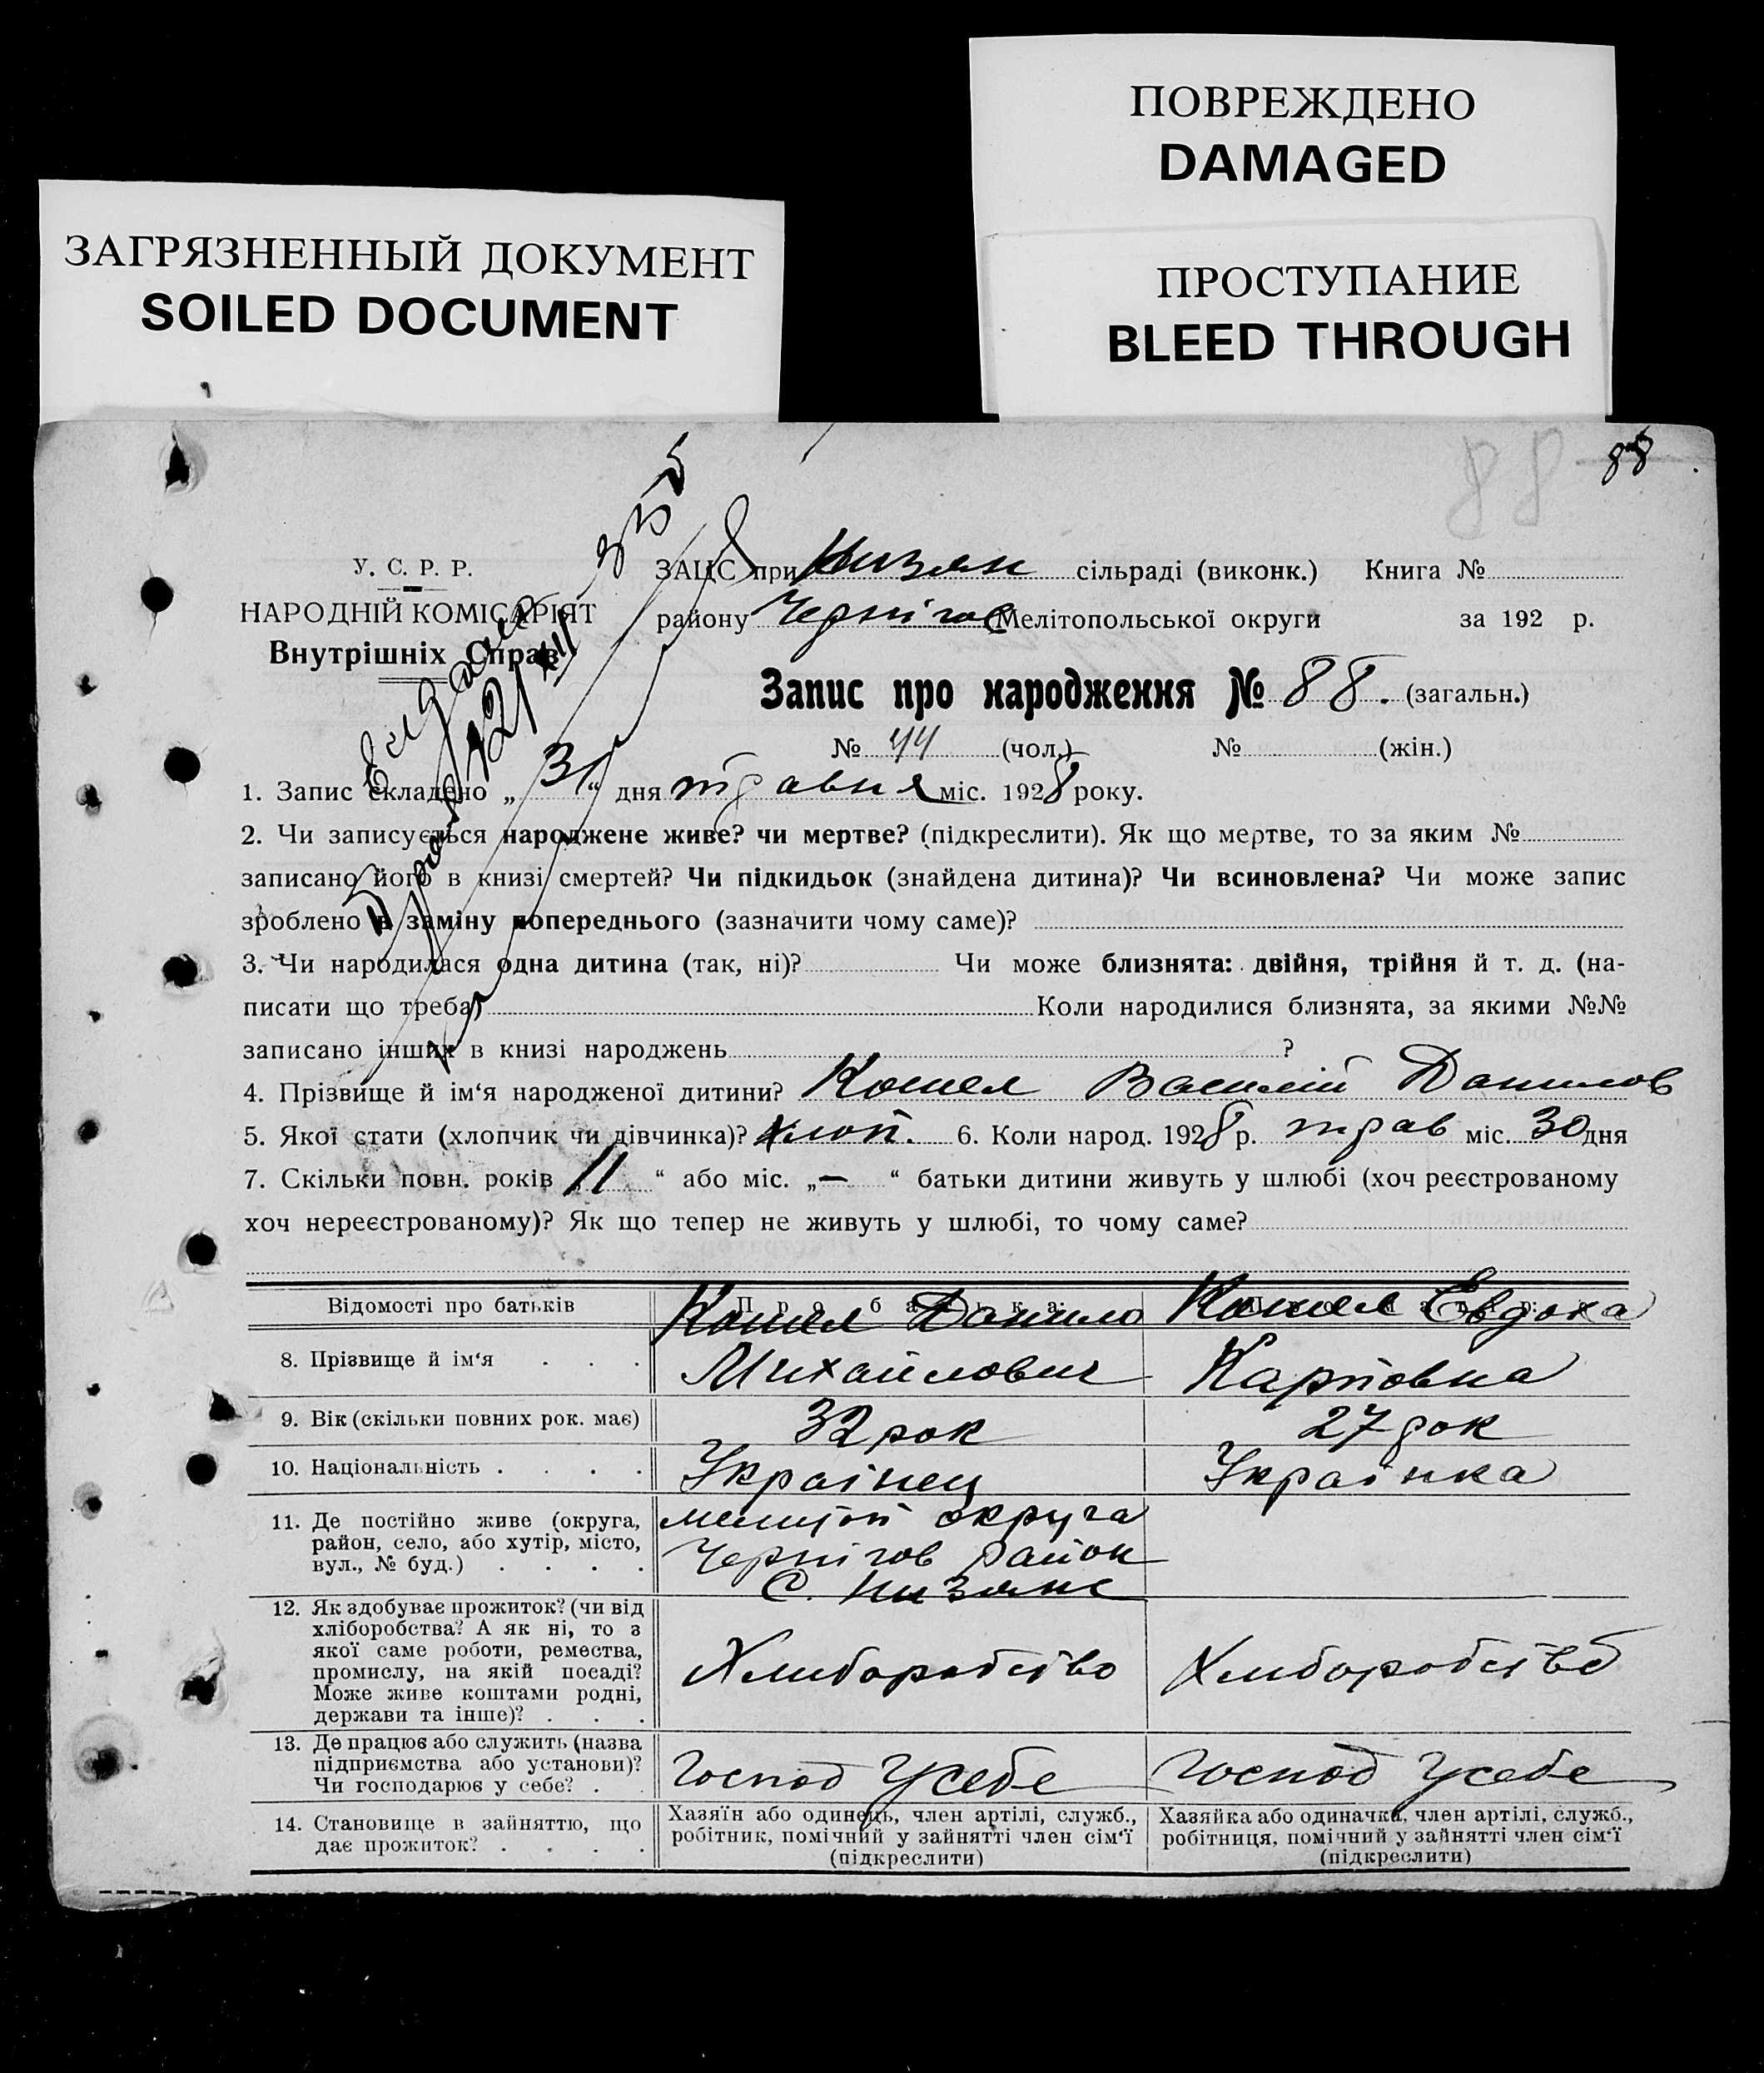 ПОВРЕЖДЕНО
DAMAGED
ЗАГРЯЗНЕННЫЙ ДОКУМЕНТ
SOILED DOCUMENT
ПРОСТУПАНИЕ
BLEED THROUGH
88 88
У. С. Р. Р.
НАРОДНІЙ КОМІСАРІЯТ
Внутрішніх Справ
ЗАЦС при Низян сільраді (виконк.) Книга №
району Чернігов Мелітопольської округи за 192 р.
Запис про народження № 88. (загальн.)
№ 44 (чол.) № (жін.)
1. Запис складено „ 31 “ дня травня міс. 1928 року.
2. Чи записується народжене живе? чи мертве? (підкреслити). Як що мертве, то за яким №
записано його в книзі смертей? Чи підкидьок (знайдена дитина)? Чи всиновлена? Чи може запис
зроблено в заміну попереднього (зазначити чому саме)?
3. Чи народилася одна дитина (так, ні)? Чи може близнята: двійня, трійня й т. д. (на-
писати що треба) Коли народилися близнята, за якими №№
записано інших в книзі народжень ?
4. Прізвище й ім‘я народженої дитини? Кошел Василій Данилов
5. Якої стати (хлопчик чи дівчинка)? хлоп. 6. Коли народ. 1928 р. трав міс. 30 дня
7. Скільки повн. років „ 11 “ або міс. „ — “ батьки дитини живуть у шлюбі (хоч реєстрованому
хоч нереєстрованому)? Як що тепер не живуть у шлюбі, то чому саме?
Відомості про батьків Про батька: Про матір:
8. Прізвище й ім‘я . . . Кошел Данило Кошел Евдока
Михайлович Карповна
9. Вік (скільки повних рок. має) 32 рок 27 рок
10. Національність . . . . Українец Українка
11. Де постійно живе (округа, мелітоп округа
район, село, або хутір, місто, Чернігов район
вул., № буд.) . . . . С. Низяне
12. Як здобуває прожиток? (чи від
хліборобства? А як ні, то з
якої саме роботи, ремества,
промислу, на якій посаді? Хлиборобство Хлиборобство
Може живе коштами родні,
держави та інше)? . . .
13. Де працює або служить (назва
підприємства або установи)? Господ усебе Господ усебе
Чи господарює у себе? . .
14. Становище в зайняттю, що
дає прожиток? . . . .
Хазяїн або одинець, член артілі, служб.,
робітник, помічний у зайнятті член сім‘ї
(підкреслити)
Хазяйка або одиначка, член артілі, служб.,
робітниця, помічний у зайнятті член сім‘ї
(підкреслити)